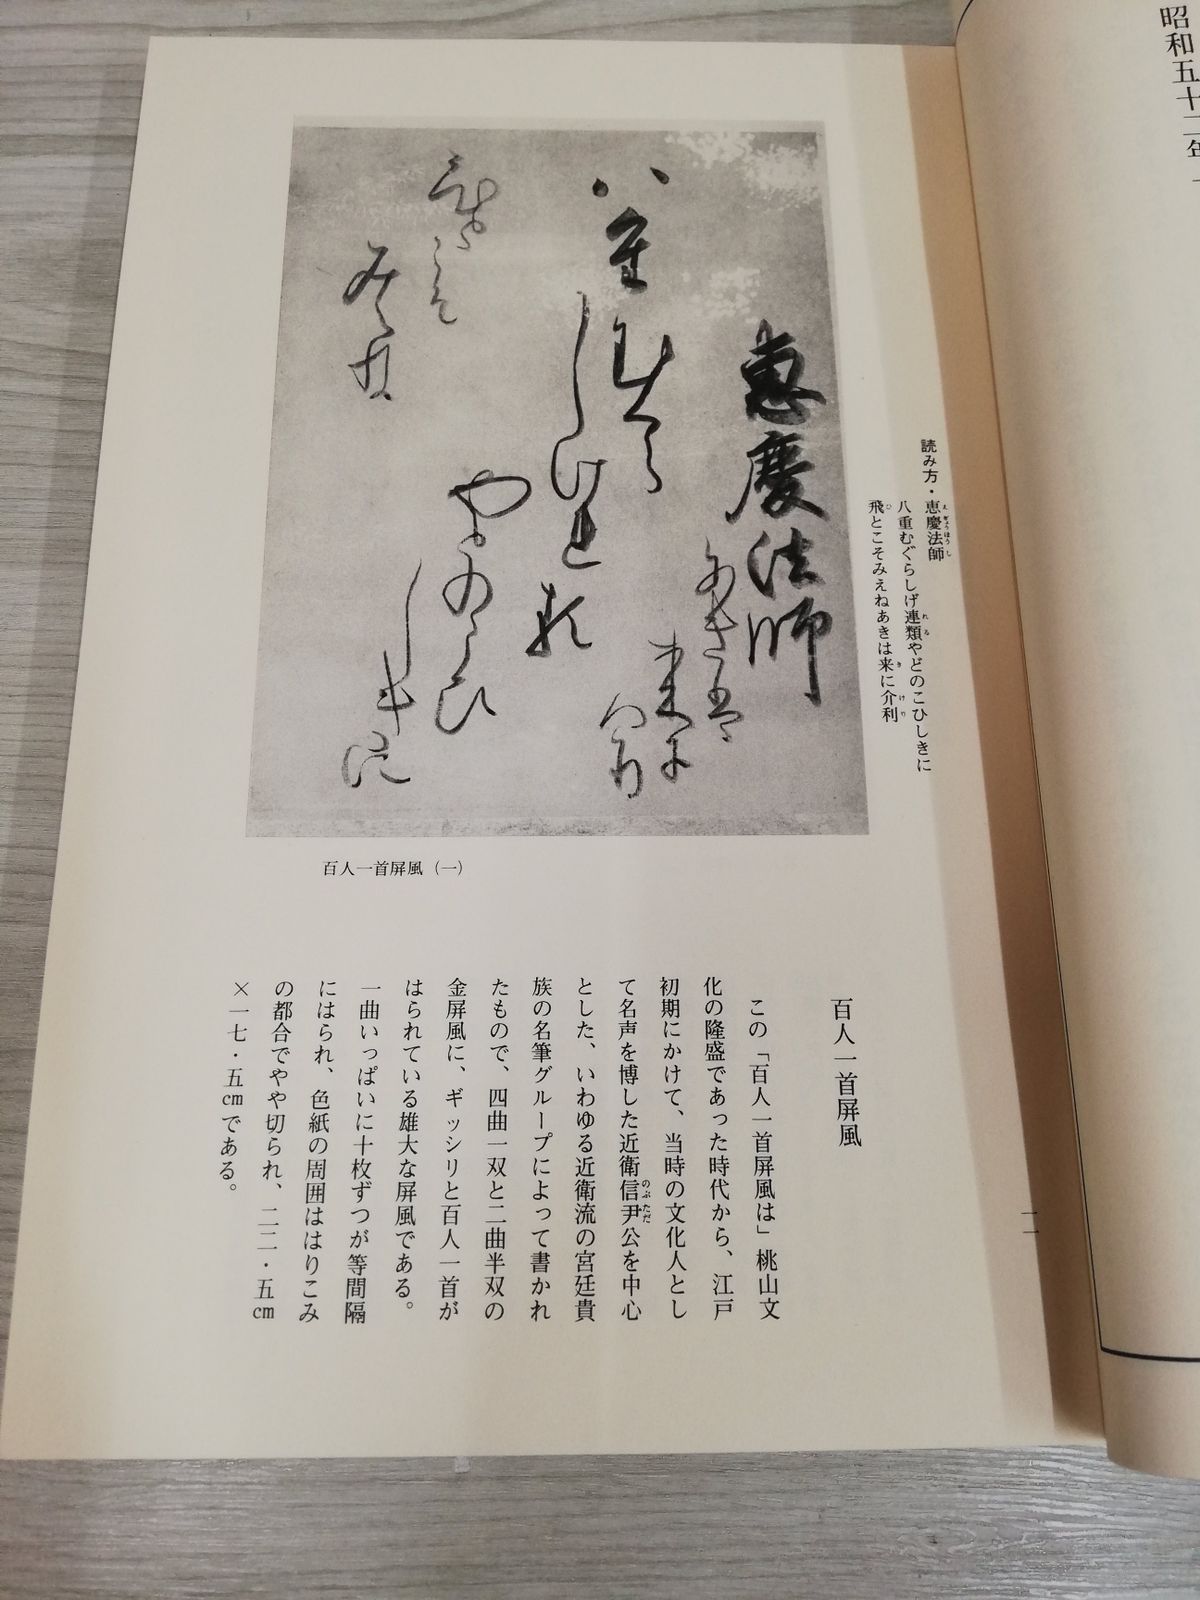 昭和五十二年
読み方・恵慶法師
八重むぐらしげ連類やどのこひしきに
飛とこそみえねあきは来に介利
恵慶法師
八重むぐら
しけ連類
やとのこひ
しきに
百人一首屏風（一）
百人一首屏風
この「百人一首屏風は」桃山文
化の隆盛であった時代から、江戸
初期にかけて、当時の文化人とし
て名声を博した近衛信尹公を中心
とした、いわゆる近衛流の宮廷貴
族の名筆グループによって書かれ
たもので、四曲一双と二曲半双の
金屏風に、ギッシリと百人一首が
はられている雄大な屏風である。
一曲いっぱいに十枚ずつが等間隔
にはられ、色紙の周囲ははりこみ
の都合でやや切られ、二二・五cm
×一七・五cmである。
一一